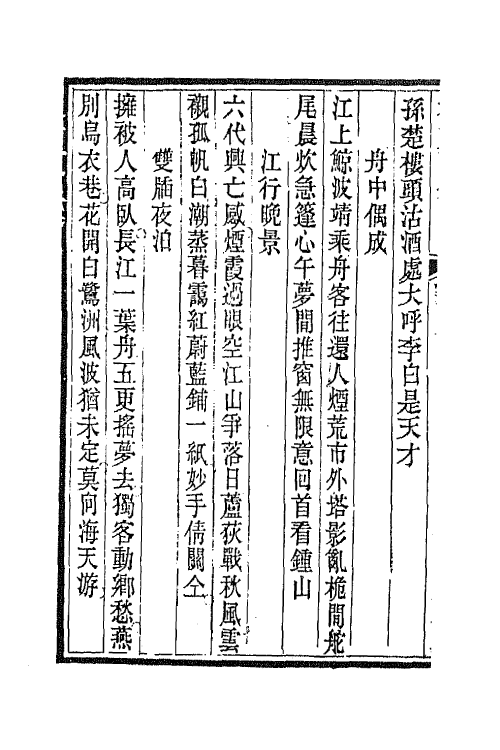 孫楚樓頭沽酒處大呼李白是天才
舟中偶成
江上鯨波靖乘舟客往還人煙荒市外塔影亂桅間舵
尾晨炊急篷心午夢閒推窗無限意回首看鍾山
江行晚景
六代興亡感煙霞過眼空江山爭落日蘆荻戰秋風雲
襯孤帆白潮蒸暮靄紅蔚藍鋪一紙妙手倩關仝
雙牐夜泊
擁被人高臥長江一葉舟五更搖夢去獨客動鄉愁燕
別烏衣巷花開白鷺洲風波猶未定莫向海天游